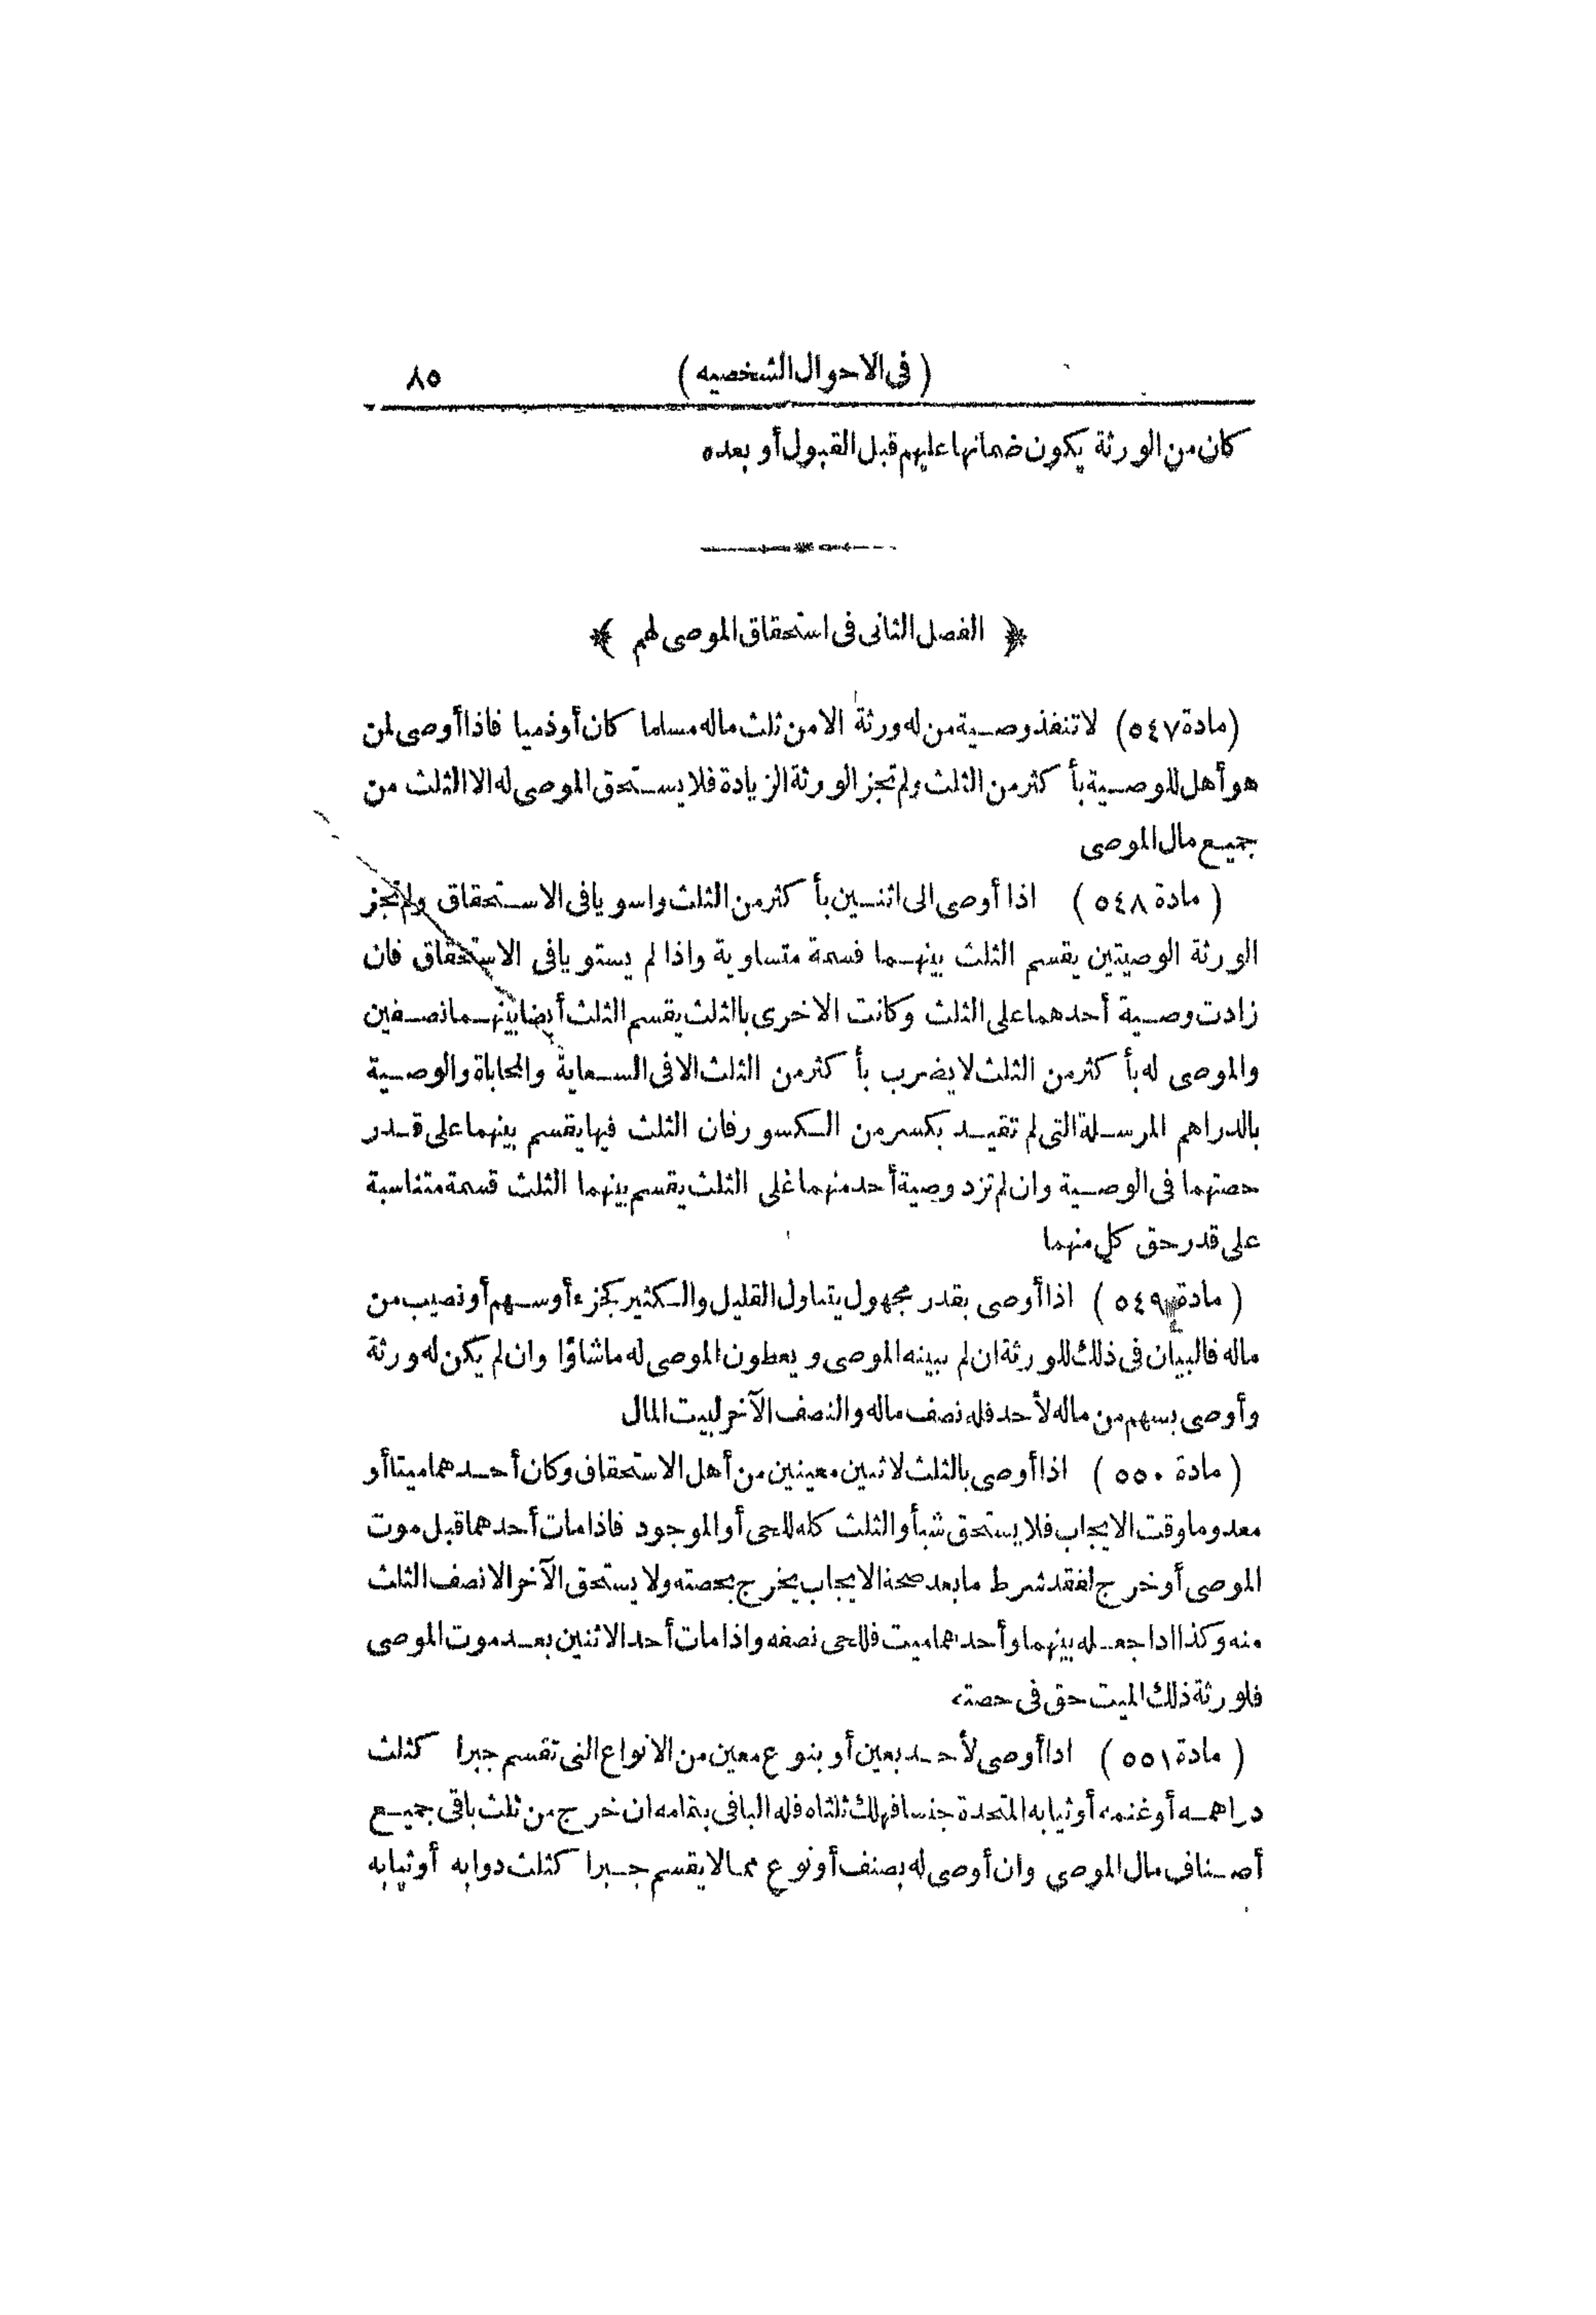 (فى الاحوال الشخصيه) ٨٥
كان من الورثة يكون ضمانها عليهم قبل القبول أو بعده
﴿ الفصل الثانى فى استحقاق الموصى لهم ﴾
(مادة ٥٤٧) لا تنفذ وصية من له ورثة الا من ثلث ماله مسلما كان أو ذميا فاذا أوصى لمن
هو أهل للوصية بأكثر من الثلث ولم تجز الورثة الزيادة فلا يستحق الموصى له الا الثلث من
جميع مال الموصى
(مادة ٥٤٨) اذا أوصى الى اثنين بأكثر من الثلث واسويا فى الاستحقاق ولم تجز
الورثة الوصيتين يقسم الثلث بينهما قسمة متساوية واذا لم يستويا فى الاستحقاق فان
زادت وصية أحدهما على الثلث وكانت الاخرى بالثلث يقسم الثلث أيضا بينهما نصفين
والموصى له بأكثر من الثلث لا يضرب بأكثر من الثلث الا فى السعاية والمحاباة والوصية
بالدراهم المرسلة التى لم تقيد بكسر من الكسور فان الثلث فيها يقسم بينهما على قدر
حصتهما فى الوصية وان لم تزد وصية أحد منهما على الثلث يقسم بينهما الثلث قسمة متناسبة
على قدر حق كل منهما
(مادة ٥٤٩) اذا أوصى بقدر مجهول يتناول القليل والكثير كجزء أو سهم أو نصيب من
ماله فالبيان فى ذلك للورثة ان لم يبينه الموصى ويعطون الموصى له ما شاؤا وان لم يكن له ورثة
وأوصى بسهم من ماله لأحد فله نصف ماله والنصف الآخر لبيت المال
(مادة ٥٥٠) اذا أوصى بالثلث لاثنين معينين من أهل الاستحقاق وكان أحدهما ميتا أو
معدوما وقت الايجاب فلا يستحق شيأ والثلث كله للحى أو الموجود فاذا مات أحدهما قبل موت
الموصى أو خرج لفقد شرط ما بعد صحة الايجاب يخرج بحصته ولا يستحق الآخر الا نصف الثلث
منه وكذا اذا جعله بينهما وأحدهما ميت فللحى نصفه واذا مات أحد الاثنين بعد موت الموصى
فلورثة ذلك الميت حق فى حصته
(مادة ٥٥١) اذا أوصى لأحد بعين أو بنوع معين من الانواع التى تقسم جبرا كثلث
دراهمه أو غنمه أو ثيابه المتحدة جنسا فهلك ثلثاه فله الباقى بتمامه ان خرج من ثلث باقى جميع
أصناف مال الموصى وان أوصى له بصنف أو نوع مما لا يقسم جبرا كثلث دوابه أو ثيابه